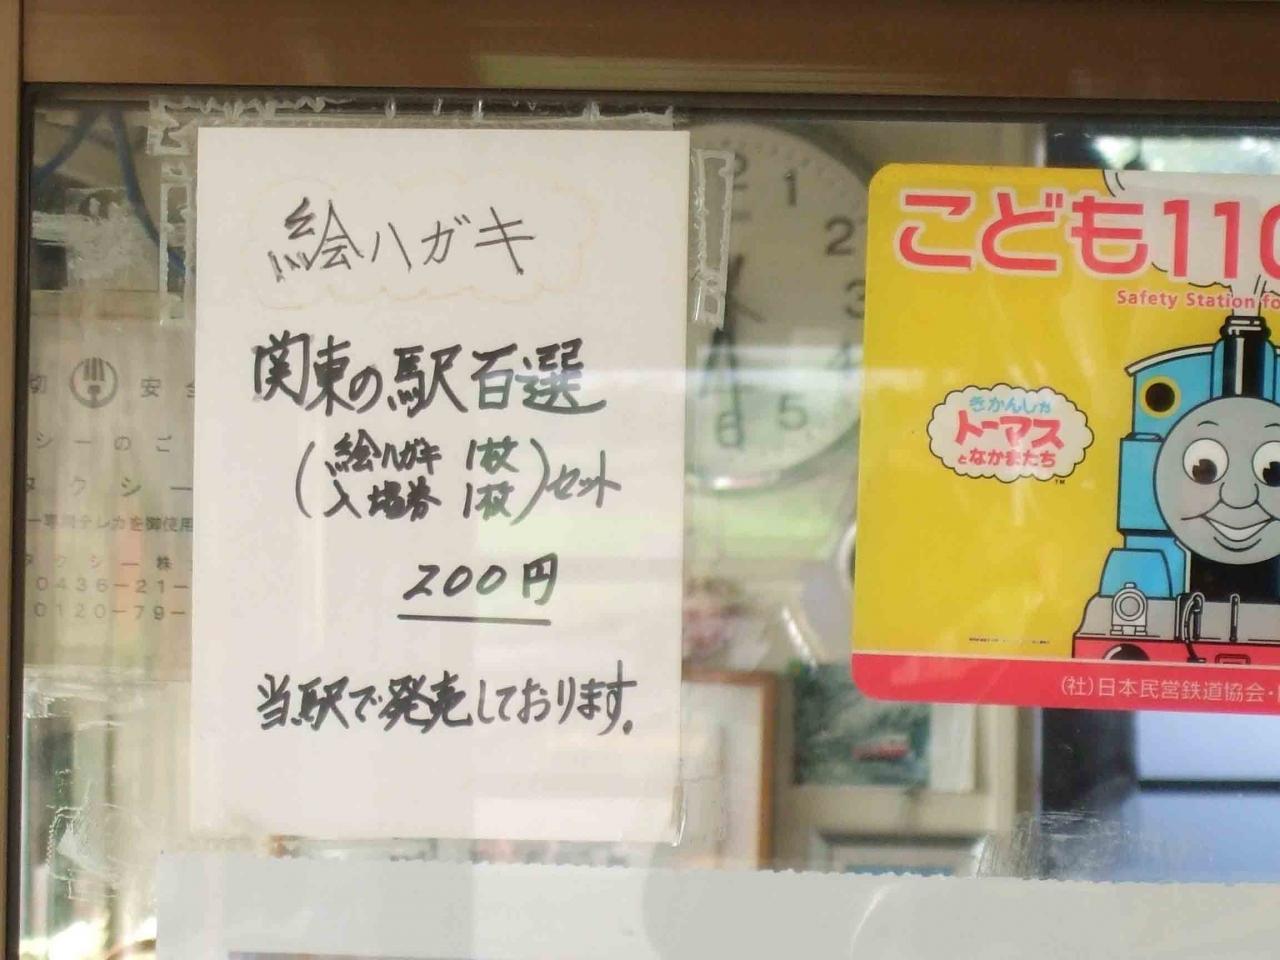 絵ハガキ
関東の駅百選
(絵ハガキ 1枚
入場券 1枚)セット
200円
当駅で発売しております。
こども110
Safety Station fo
きかんしゃ
トーマス
となかまたち
TM
(社)日本民営鉄道協会・
12
1
2
3
4
5
6
切 安全
シーのご
タクシー
ー専用テレカを御使用
タクシー株
0436-21-
0120-79-